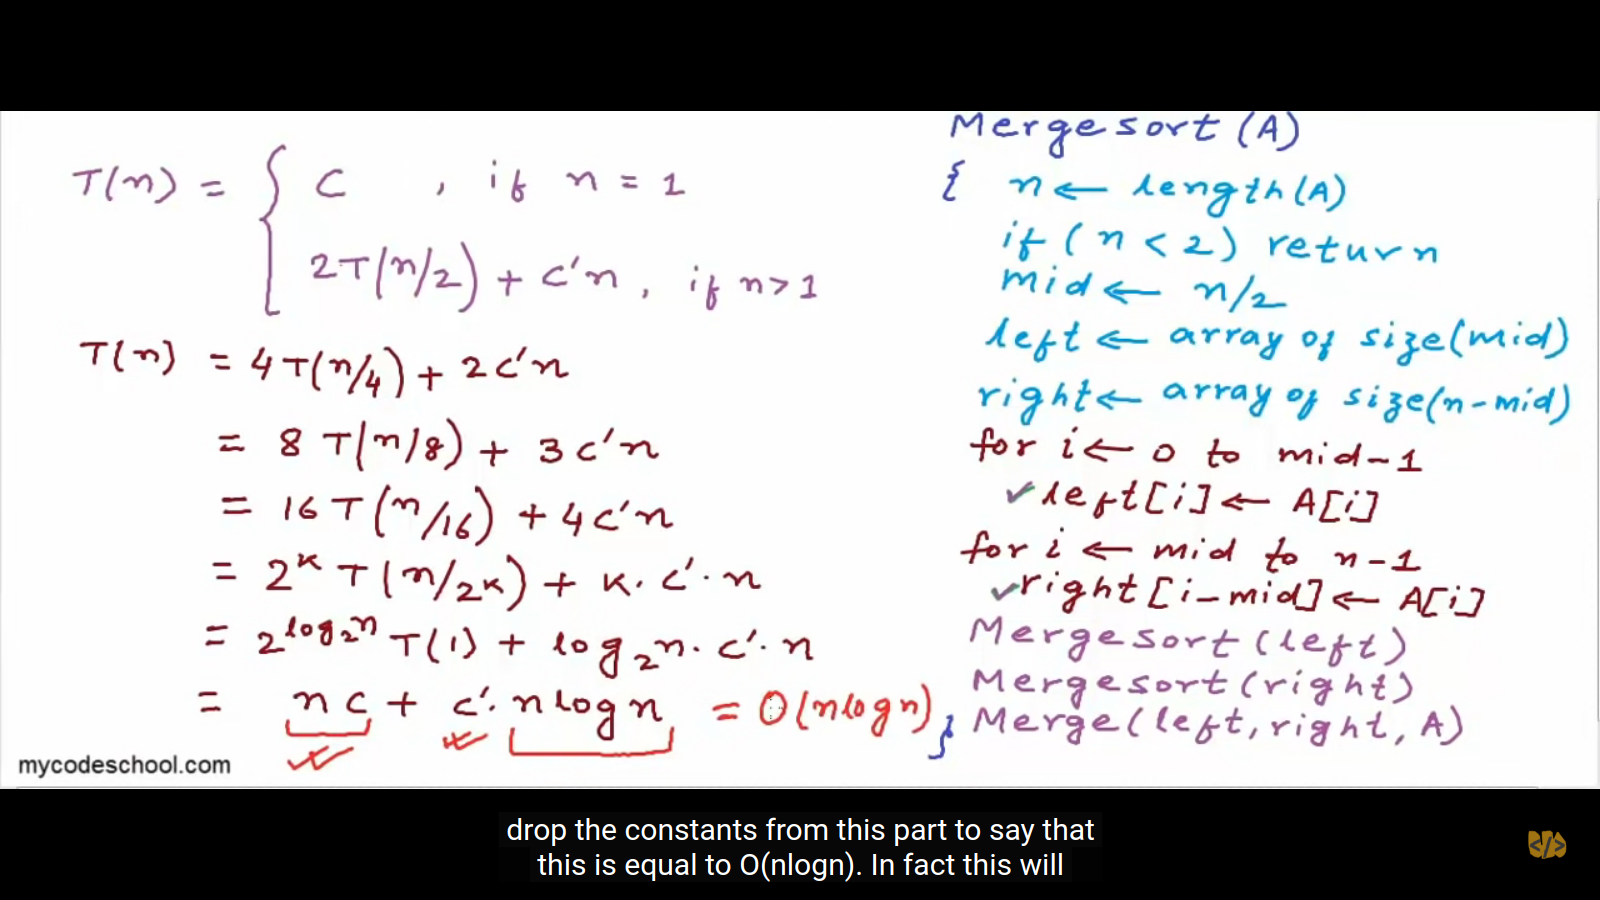 T(n) = { C , if n = 1
2T(n/2) + C'n, if n>1
T(n) = 4T(n/4) + 2C'n
= 8 T(n/8) + 3C'n
= 16 T(n/16) + 4C'n
= 2^K T(n/2^K) + K.C'.n
= 2^log₂n T(1) + log₂n.C'.n
= nC + C'.nlogn = O(nlogn)
mycodeschool.com
Mergesort(A)
{ n ← length(A)
if (n < 2) return
mid ← n/2
left ← array of size(mid)
right ← array of size(n-mid)
for i ← 0 to mid-1
✓ left[i] ← A[i]
for i ← mid to n-1
✓ right[i-mid] ← A[i]
Mergesort(left)
Mergesort(right)
Merge(left, right, A)
}
drop the constants from this part to say that
this is equal to O(nlogn). In fact this will